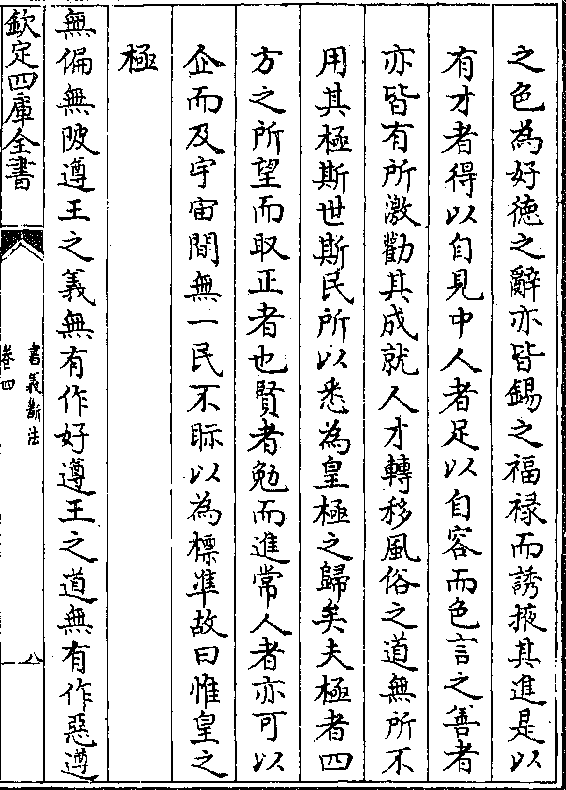 之色為好徳之辭亦皆錫之福禄而誘掖其進是以
有才者得以自見中人者足以自容而色言之善者
亦皆有所激勸其成就人才轉移風俗之道無所不
用其極斯世斯民所以悉為皇極之歸矣夫極者四
方之所望而取正者也賢者勉而進常人者亦可以
企而及宇宙間無一民不眎以為標準故曰惟皇之
極
無偏無陂遵王之義無有作好遵王之道無有作惡遵
欽定四庫全書
書義斷法
卷四
八